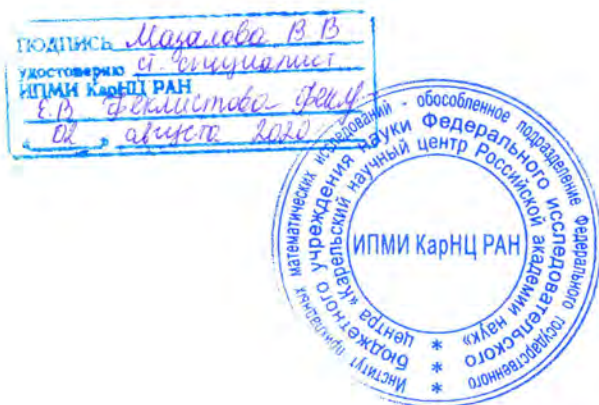 ПОДПИСЬ Мазалова В.В
удостоверяю ст. специалист
ИПМИ КарНЦ РАН
Е.В. Феклистова
"02" августа 2020
Институт прикладных математических исследований - обособленное подразделение Федерального государственного
бюджетного учреждения науки Федерального исследовательского
центра «Карельский научный центр Российской академии наук»
ИПМИ КарНЦ РАН
* * *